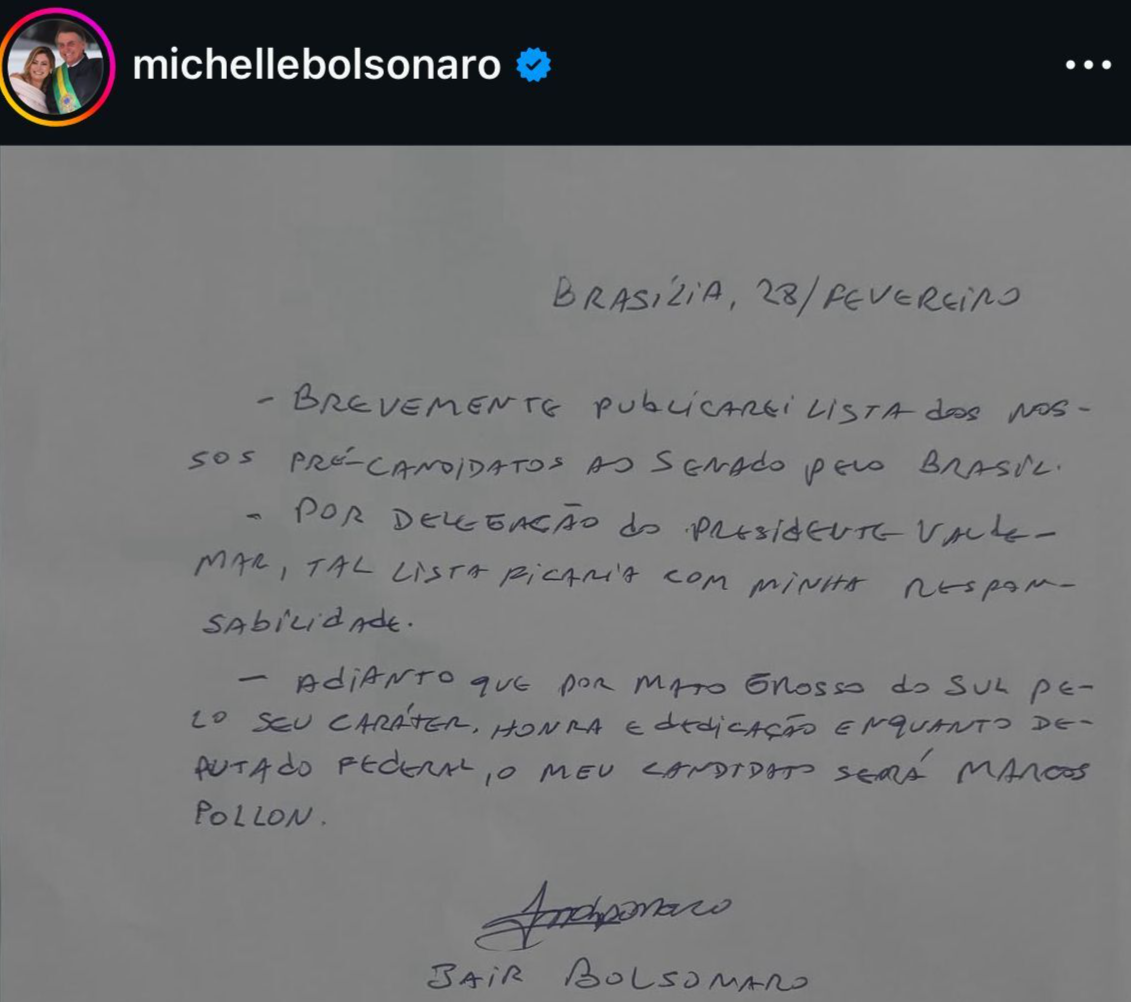 michellebolsonaro
BRASÍLIA, 28/FEVEREIRO
- BREVEMENTE PUBLICAREI LISTA dos NOS-
SOS PRÉ-CANDIDATOS AO SENADO PELO BRASIL.
- POR DELEGAÇÃO do PRESIDENTE VALDE-
MAR, TAL LISTA FICARIA COM MINHA RESPON-
SABILIDADE.
- ADIANTO QUE POR MATO GROSSO do SUL PE-
LO SEU CARÁTER, HONRA E dEdiCAÇÃO ENQUANTO DE-
PUTADO FEDERAL, O MEU CANDIDATO SERÁ MARCOS
POLLON.
JAIR BOLSONARO